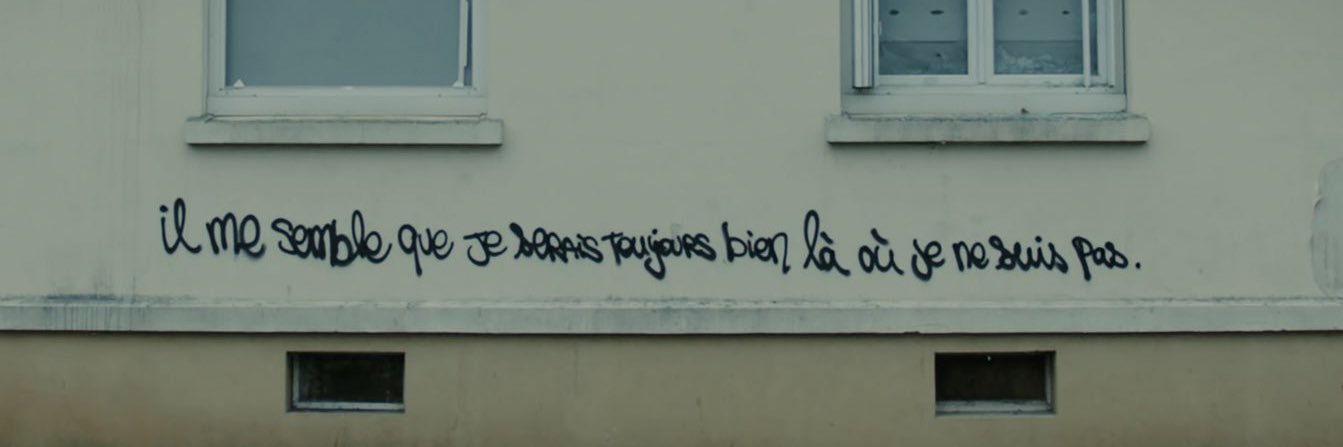 il me semble que je serais toujours bien là où je ne suis pas.